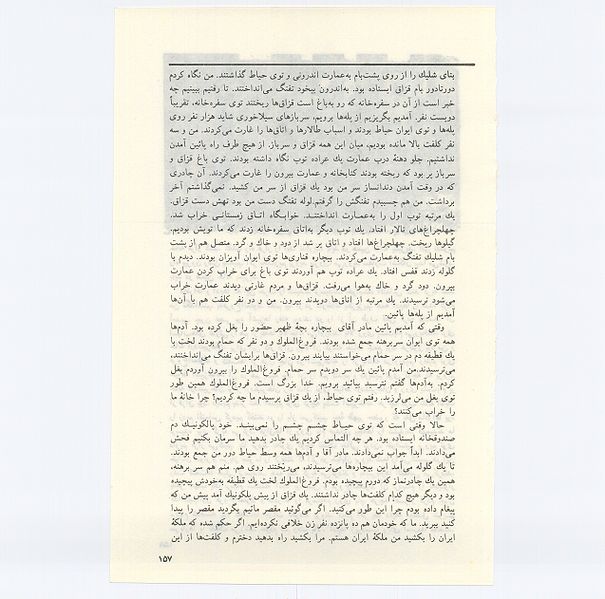 بنای شلیك را از روی پشت‌بام به‌عمارت اندرونی و توی حیاط گذاشتند. من نگاه کردم
دورتادور بام قزاق ایستاده بود. به‌اندرون بیخود تفنگ می‌انداختند. تا رفتیم ببینیم چه
خبر است از آن در سفره‌خانه که رو به‌باغ است قزاق‌ها ریختند توی سفره‌خانه، تقریباً
دویست نفر. آمدیم بگریزیم از پله‌ها برویم، سربازهای سیلاخوری شاید هزار نفر روی
پله‌ها و توی ایوان حیاط بودند و اسباب طالارها و اتاق‌ها را غارت می‌کردند. من و سه
نفر کلفت بالا مانده بودیم، میان این همه قزاق و سرباز. از هیچ طرف راه پائین آمدن
نداشتیم. جلو دهنهٔ درب عمارت یك عراده توپ نگاه داشته بودند. توی باغ قزاق و
سرباز پر بود که ریخته بودند کتابخانه و عمارت بیرون را غارت می‌کردند. آن چادری
که در وقت آمدن دندانساز سر من بود یك قزاق از سر من کشید. نمی‌گذاشتم آخر
برداشت. من هم چسبیدم تفنگش را گرفتم. لوله تفنگ دست من بود تهش دست قزاق.
یك مرتبه توپ اول را به‌عمارت انداختند. خوابگاه اتاق زمستانی خراب شد.
چهلچراغ‌های تالار افتاد. یك توپ دیگر به‌اتاق سفره‌خانه زدند که ما تویش بودیم.
گیلوها ریخت. چهلچراغ‌ها افتاد و اتاق پر شد از دود و خاك و گرد. متصل هم از پشت
بام شلیك تفنگ به‌عمارت می‌کردند. بیچاره قناری‌ها توی ایوان آویزان بودند. دیدم با
گلوله زدند قفس افتاد. یك عراده توپ هم آوردند توی باغ برای خراب کردن عمارت
بیرون. دود گرد و خاك به‌هوا می‌رفت. قزاق‌ها و مردم غارتی دیدند عمارت خراب
می‌شود ترسیدند. یك مرتبه از اتاق‌ها دویدند بیرون. من و دو نفر کلفت هم با آن‌ها
آمدیم از پله‌ها پائین.
وقتی که آمدیم پائین مادر آقای بیچاره بچهٔ ظهیر حضور را بغل کرده بود. آدم‌ها
همه توی ایوان سربرهنه جمع شده بودند. فروغ‌الملوك و دو نفر که حمام بودند لخت با
یك قطیفه دم در سر حمام می‌خواستند بیایند بیرون. قزاق‌ها برایشان تفنگ می‌انداختند،
می‌ترسیدند. من آمدم پائین یك سر دویدم سر حمام. فروغ‌الملوك را بیرون آوردم بغل
کردم. به‌آدم‌ها گفتم نترسید بیائید برویم. خدا بزرگ است. فروغ‌الملوك همین طور
توی بغل من می‌لرزید. رفتم توی حیاط، از یك قزاق پرسیدم ما چه کردیم؟ چرا خانهٔ ما
را خراب می‌کنند؟
حالا وقتی است که توی حیاط چشم چشم را نمی‌بیند. خود پالکونیك دم
صندوقخانه ایستاده بود. هر چه التماس کردیم یك چادر بدهید ما سرمان بکنیم فحش
می‌دادند. ابداً جواب نمی‌دادند. مادر آقا و آدم‌ها همه وسط حیاط دور من جمع بودند.
تا یك گلوله می‌آمد این بیچاره‌ها می‌ترسیدند، می‌ریختند روی هم. منم هم سر برهنه،
همین یك چادرنماز که دورم پیچیده بودم. فروغ‌الملوك لخت یك قطیفه به‌خودش پیچیده
بود و دیگر هیچ کدام کلفت‌ها چادر نداشتند. یك قزاق از پیش پلکونیك آمد پیش من که
پیغام داده بودم چرا این طور می‌کنید. اگر می‌گوئید مقصر مائیم بگردید مقصر را پیدا
کنید ببرید. ما که خودمان هم ده پانزده نفر زن خلافی نکرده‌ایم. اگر حکم شده که ملکهٔ
ایران را بکشید من ملکهٔ ایران هستم. مرا بکشید راه بدهید دخترم و کلفت‌ها از این
۱۵۷